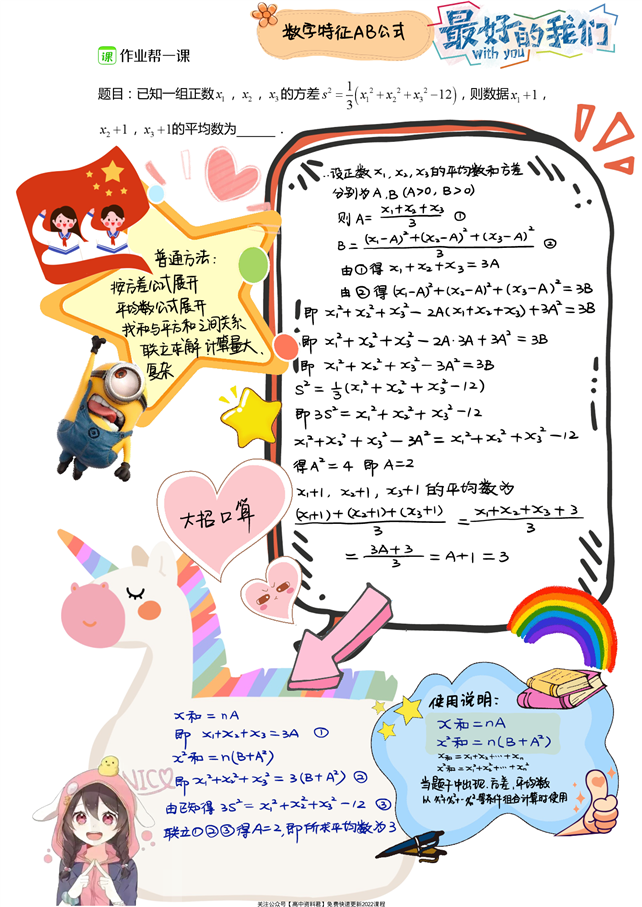 数字特征AB公式
最好的我们
with you
课 作业帮一课
题目：已知一组正数x₁，x₂，x₃的方差s²=1/3(x₁²+x₂²+x₃²-12)，则数据x₁+1，
x₂+1，x₃+1的平均数为______．
设正数x₁,x₂,x₃的平均数和方差
分别为A,B(A>0,B>0)
则A=(x₁+x₂+x₃)/3 ①
B=((x₁-A)²+(x₂-A)²+(x₃-A)²)/3 ②
由①得x₁+x₂+x₃=3A
由②得(x₁-A)²+(x₂-A)²+(x₃-A)²=3B
即x₁²+x₂²+x₃²-2A(x₁+x₂+x₃)+3A²=3B
即x₁²+x₂²+x₃²-2A·3A+3A²=3B
即x₁²+x₂²+x₃²-3A²=3B
S²=1/3(x₁²+x₂²+x₃²-12)
即3S²=x₁²+x₂²+x₃²-12
x₁²+x₂²+x₃²-3A²=x₁²+x₂²+x₃²-12
得A²=4 即A=2
x₁+1,x₂+1,x₃+1的平均数为
((x₁+1)+(x₂+1)+(x₃+1))/3=(x₁+x₂+x₃+3)/3
=(3A+3)/3=A+1=3
普通方法：
按方差公式展开
平均数公式展开
找和与平方和之间关系
联立求解 计算量大、
复杂
大招口算
x和=nA
即 x₁+x₂+x₃=3A ①
x²和=n(B+A²)
即x₁²+x₂²+x₃²=3(B+A²) ②
由已知得3S²=x₁²+x₂²+x₃²-12 ③
联立①②③得A=2,即所求平均数为3
使用说明：
x和=nA
x²和=n(B+A²)
x和=x₁+x₂+…+xₙ
x²和=x₁²+x₂²+…+xₙ²
当题干中出现:方差,平均数
NICO
关注公众号【高中资料君】免费快速更新2022课程